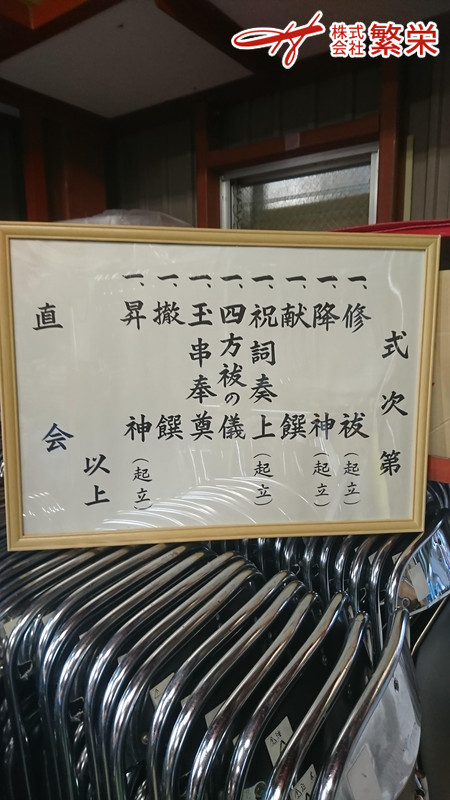 株式会社 繁栄
式次第
一、修祓(起立)
一、降神(起立)
一、献饌
一、祝詞奏上(起立)
一、四方祓の儀
一、玉串奉奠
一、撤饌
一、昇神(起立)
以上
直会